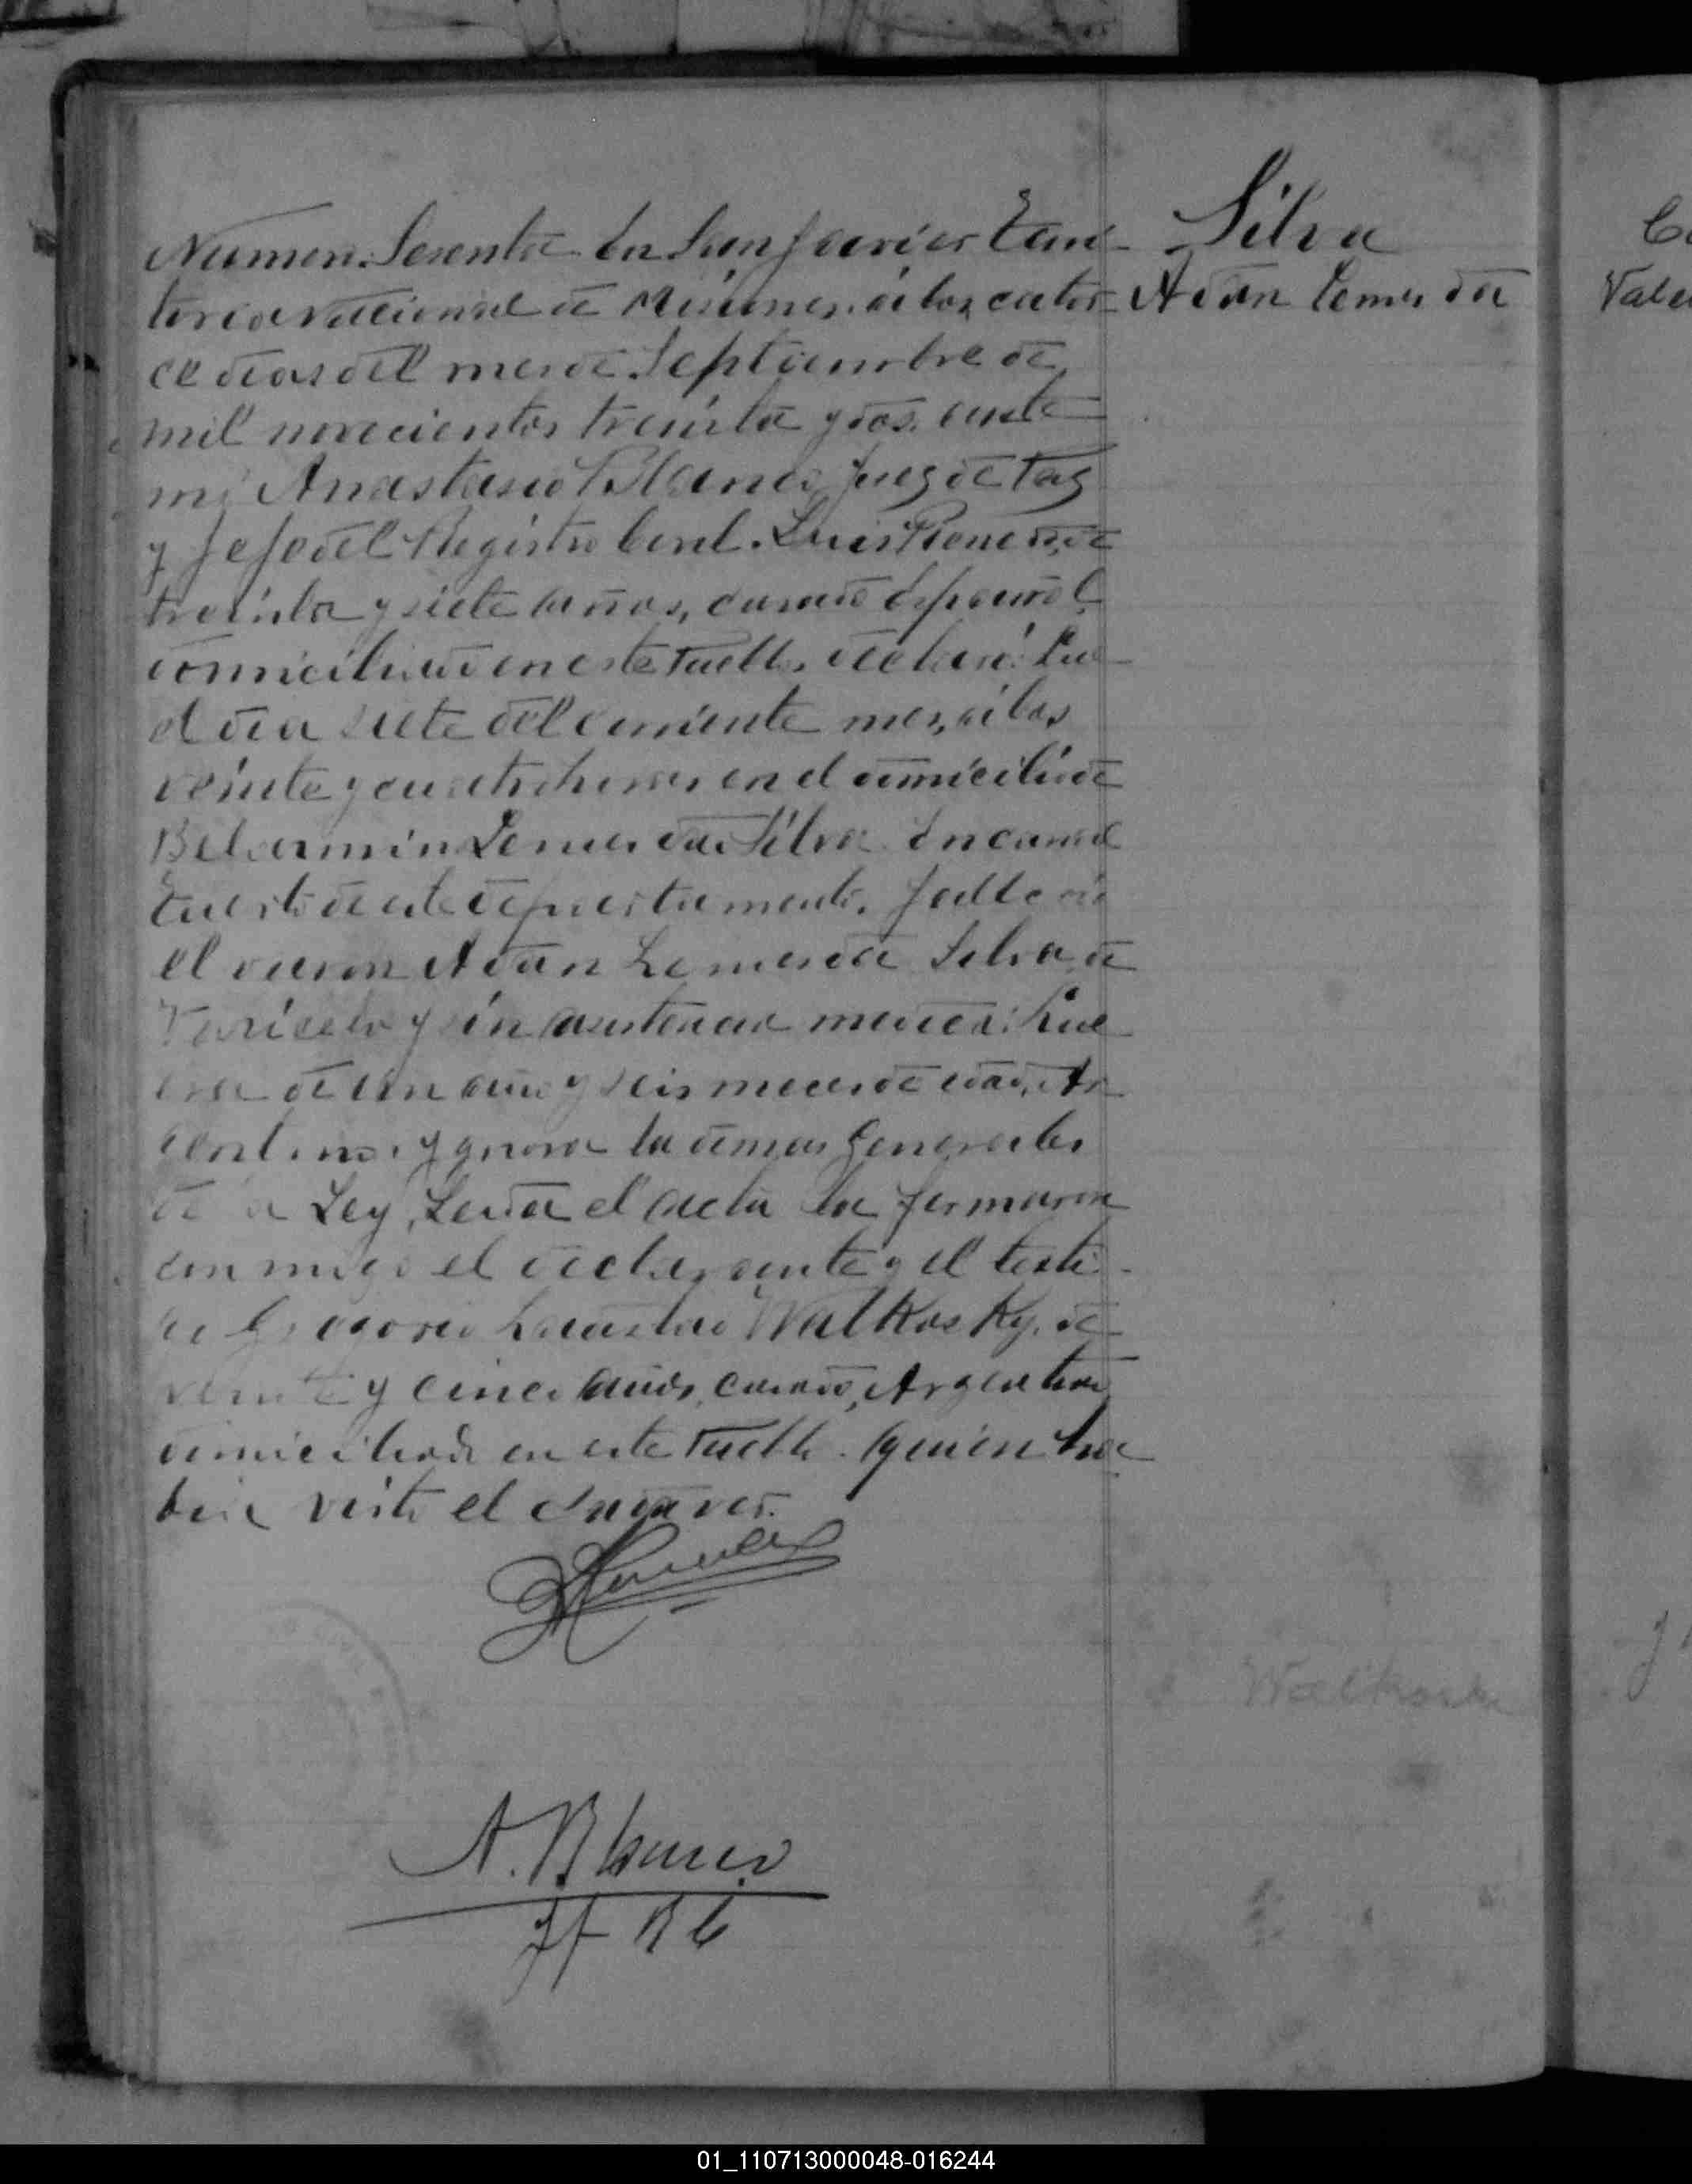 Silva
Adan Lemes da
Numero Sesenta. En San Javier Terri-
torio nacional de Misiones, á los cator-
ce dias del mes de Septiembre de
mil novecientos treinta y dos, ante
mi Anastasio Blanco Juez de Paz
y Jefe del Registro Civil. Luis
treinta y siete años, casado Español
domiciliado en este Pueblo, declaró: Que
el dia siete del corriente mes, á las
veinte y cuatro horas en el domicilio de
Belarmin Lemes da Silva
Puerto de este departamento. Falleció
el varon Adan Lemes da Silva, de
y sin asistencia medica: Que
era de un año y seis meses de edad, Ar-
gentino, ygnora la demas Generales
de la Ley, Leida el acta la firmaron
conmigo el declarante y el testi-
go Gregorio Walkosky, de
veinte y cinco años, casado, Argentino
domiciliado en este Pueblo. Quien ha-
bia visto el cadaver.
Walkosky
A. Blanco
Jf R C
Vale
01_110713000048-016244